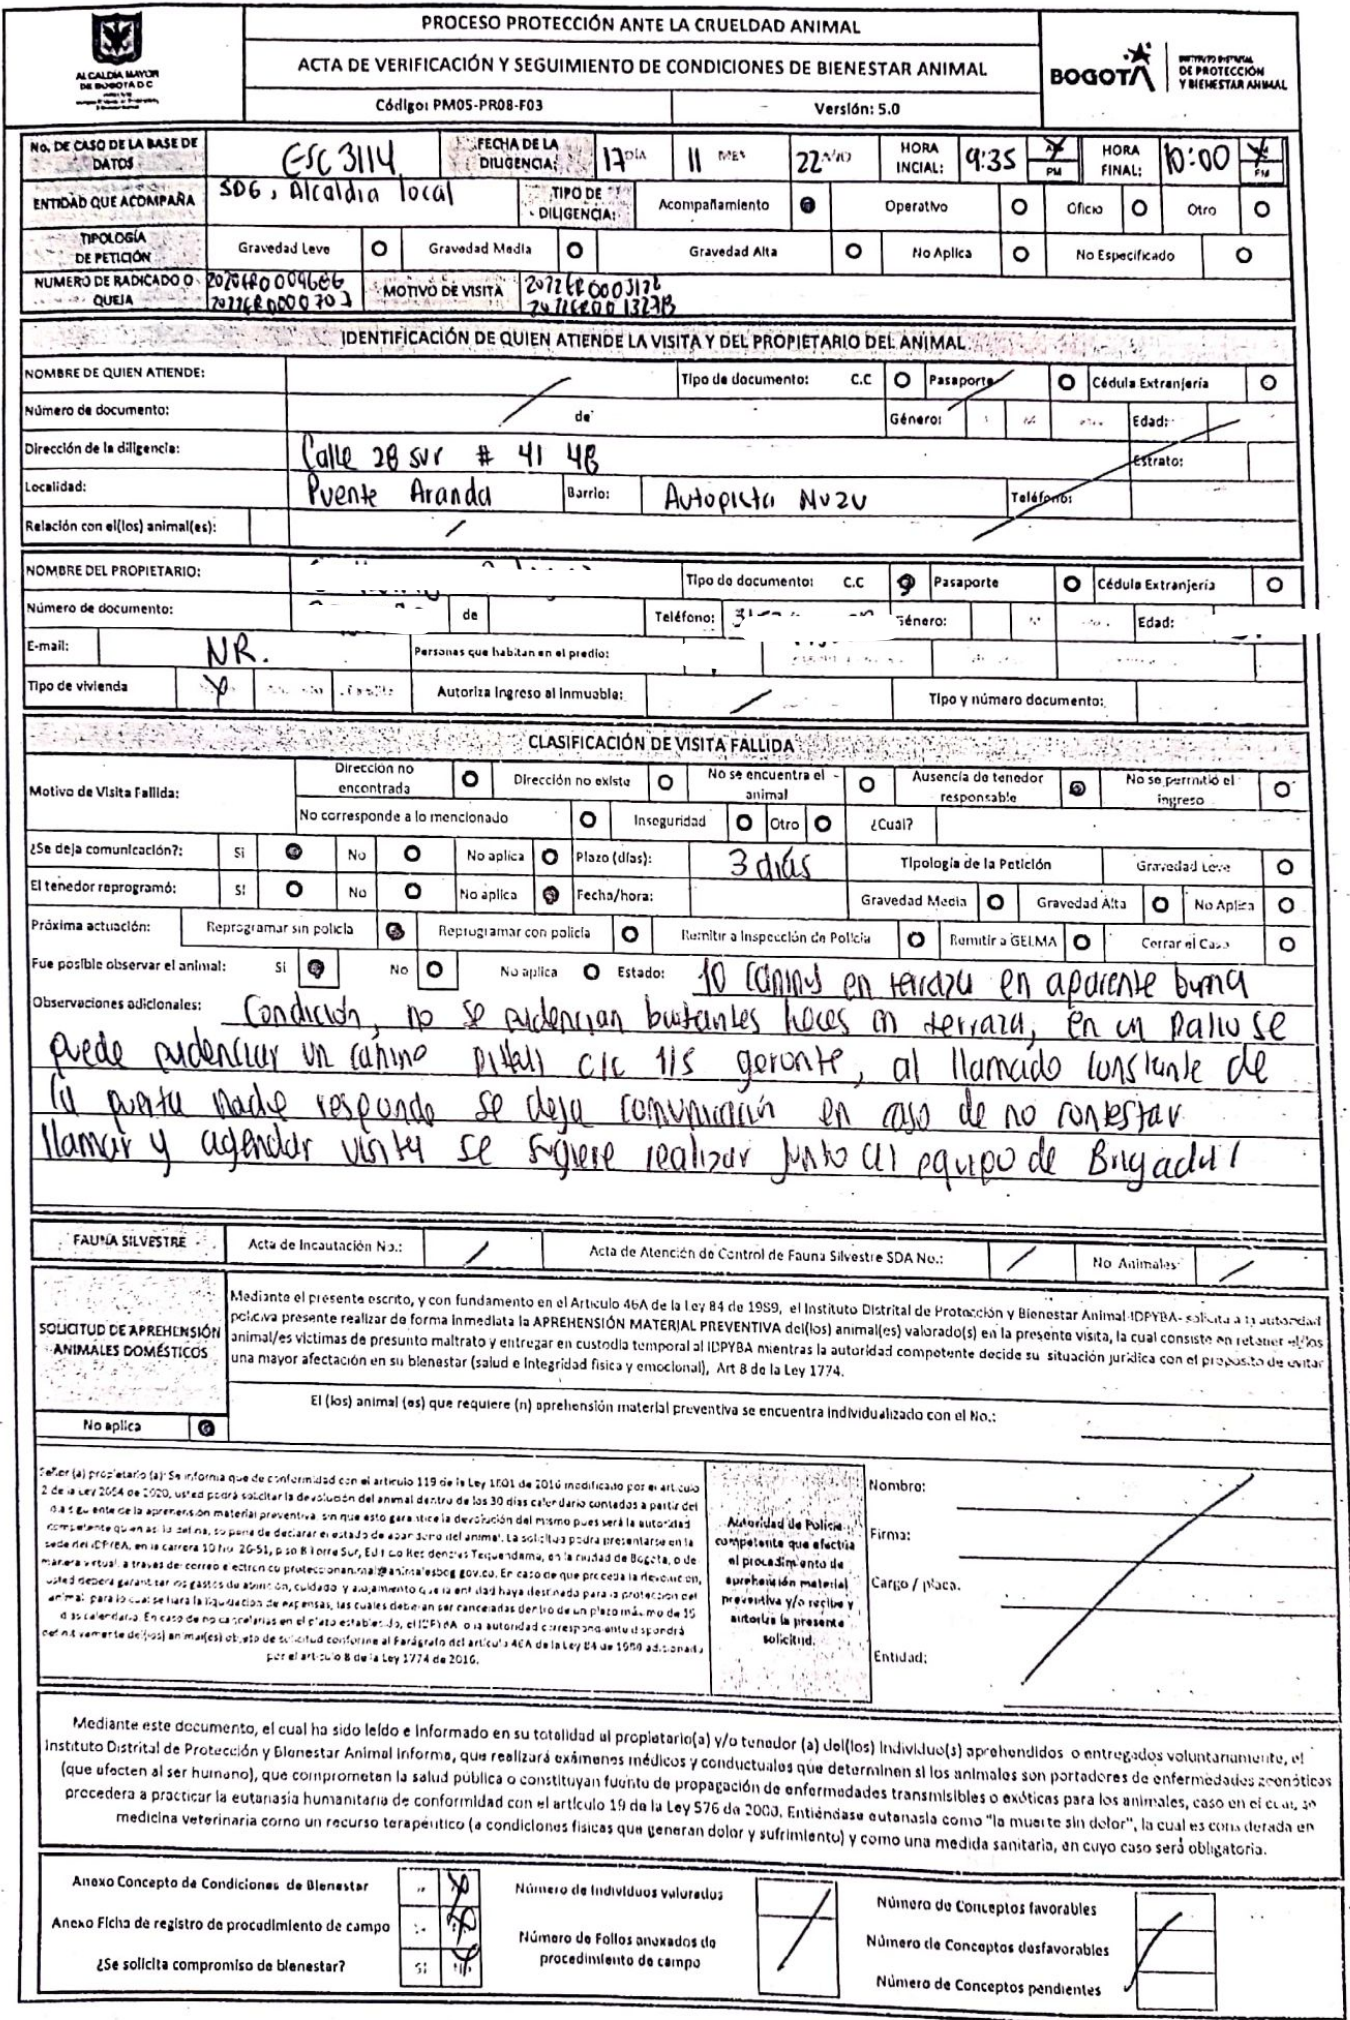 PROCESO PROTECCIÓN ANTE LA CRUELDAD ANIMAL
ALCALDÍA MAYOR
DE BOGOTÁ D C
ACTA DE VERIFICACIÓN Y SEGUIMIENTO DE CONDICIONES DE BIENESTAR ANIMAL
BOGOTÁ
INSTITUTO DISTRITAL
DE PROTECCIÓN
Y BIENESTAR ANIMAL
Código: PM05-PR08-F03 Versión: 5.0
No. DE CASO DE LA BASE DE DATOS ESC 3114 FECHA DE LA DILIGENCIA: 17 DÍA 11 MES 22 AÑO HORA INCIAL: 9:35 PM HORA FINAL: 10:00 PM
ENTIDAD QUE ACOMPAÑA SDG, Alcaldia local TIPO DE DILIGENCIA: Acompañamiento Operativo Oficio Otro
TIPOLOGÍA DE PETICIÓN Gravedad Leve Gravedad Media Gravedad Alta No Aplica No Especificado
NUMERO DE RADICADO O QUEJA MOTIVO DE VISITA
IDENTIFICACIÓN DE QUIEN ATIENDE LA VISITA Y DEL PROPIETARIO DEL ANIMAL
NOMBRE DE QUIEN ATIENDE: Tipo de documento: C.C Pasaporte Cédula Extranjería
Número de documento: de Género: Edad:
Dirección de la diligencia: Calle 2B sur # 41 4B Estrato:
Localidad: Puente Aranda Barrio: Autopista Muzu Teléfono:
Relación con el(los) animal(es):
NOMBRE DEL PROPIETARIO: Tipo de documento: C.C Pasaporte Cédula Extranjería
Número de documento: de Teléfono: Género: Edad:
E-mail: NR. Personas que habitan en el predio:
Tipo de vivienda Autoriza Ingreso al Inmueble: Tipo y número documento:
CLASIFICACIÓN DE VISITA FALLIDA
Motivo de Visita Fallida: Dirección no encontrada Dirección no existe No se encuentra el animal Ausencia de tenedor responsable No se permitió el ingreso
No corresponde a lo mencionado Inseguridad Otro ¿Cuál?
¿Se deja comunicación?: Si No No aplica Plazo (días): 3 días Tipología de la Petición Gravedad Leve
El tenedor reprogramó: SI No No aplica Fecha/hora: Gravedad Media Gravedad Alta No Aplica
Próxima actuación: Reprogramar sin policía Reprogramar con policía Remitir a Inspección de Policía Remitir a GELMA Cerrar el Caso
Fue posible observar el animal: SI No No aplica Estado: 10 caninos en terraza en aparente buena
Observaciones adicionales: Condición, no se evidencian bastantes heces en terraza, en un patio se
puede evidenciar un canino pitbull c/c 1/5 geronte, al llamado constante de
la puerta nadie responde se deja comunicación en caso de no contestar
llamar y agendar visita se sugiere realizar junto al equipo de Brigadas
FAUNA SILVESTRE Acta de Incautación No.: Acta de Atención de Control de Fauna Silvestre SDA No.: No Animales
SOLICITUD DE APREHENSIÓN ANIMALES DOMÉSTICOS
Mediante el presente escrito, y con fundamento en el Artículo 46A de la Ley 84 de 1989, el Instituto Distrital de Protección y Bienestar Animal-IDPYBA- solicita a la autoridad
policiva presente realizar de forma inmediata la APREHENSIÓN MATERIAL PREVENTIVA del(los) animal(es) valorado(s) en la presente visita, la cual consiste en retener el/los
animal/es víctimas de presunto maltrato y entregar en custodia temporal al IDPYBA mientras la autoridad competente decide su situación jurídica con el propósito de evitar
una mayor afectación en su bienestar (salud e integridad física y emocional), Art 8 de la Ley 1774.
El (los) animal (es) que requiere (n) aprehensión material preventiva se encuentra individualizado con el No.:
No aplica
Señor (a) propietario (a): Se informa que de conformidad con el artículo 119 de la Ley 1801 de 2016 modificado por el artículo
2 de la Ley 2054 de 2020, usted podrá solicitar la devolución del animal dentro de los 30 días calendario contados a partir del
día siguiente de la aprehensión material preventiva, sin que esto garantice la devolución del mismo pues será la autoridad
competente quien así la defina, so pena de declarar el estado de abandono del animal. La solicitud podrá presentarse en la
sede del IDPYBA, en la carrera 10 No. 26-51, piso 8 Torre Sur, Edificio Residencias Tequendama, en la ciudad de Bogota, o de
manera virtual, a traves de correo electronico proteccionanimal@animalesbog.gov.co. En caso de que proceda la devolución,
usted deberá garantizar los gastos de atención, cuidado y alojamiento que la entidad haya destinado para la protección del
animal, para lo cual se hara la liquidación de expensas, las cuales deberán ser canceladas dentro de un plazo máximo de 15
días calendario. En caso de no cancelarlas en el plazo establecido, el IDPYBA o la autoridad correspondiente dispondrá
definitivamente de(los) animal(es) objeto de solicitud conforme al Parágrafo del artículo 46A de la Ley 84 de 1989 adicionado
por el artículo 8 de la Ley 1774 de 2016.
Autoridad de Policía
competente que efectúa
el procedimiento de
aprehensión material
preventiva y/o recibe y
autoriza la presente
solicitud.
Nombre:
Firma:
Cargo / placa.
Entidad:
Mediante este documento, el cual ha sido leído e informado en su totalidad al propietario(a) y/o tenedor (a) del(los) individuo(s) aprehendidos o entregados voluntariamente, el
Instituto Distrital de Protección y Bienestar Animal informa, que realizará exámenes médicos y conductuales que determinen si los animales son portadores de enfermedades zoonóticas
(que afecten al ser humano), que comprometan la salud pública o constituyan fuente de propagación de enfermedades transmisibles o exóticas para los animales, caso en el cual, se
procedera a practicar la eutanasia humanitaria de conformidad con el artículo 19 de la Ley 576 de 2000. Entiéndase eutanasia como "la muerte sin dolor", la cual es considerada en
medicina veterinaria como un recurso terapéutico (a condiciones físicas que generan dolor y sufrimiento) y como una medida sanitaria, en cuyo caso será obligatoria.
Anexo Concepto de Condiciones de Bienestar Número de Individuos valorados Número de Conceptos favorables
Anexo Ficha de registro de procedimiento de campo Número de Folios anexados de procedimiento de campo Número de Conceptos desfavorables
¿Se solicita compromiso de bienestar? SI Número de Conceptos pendientes